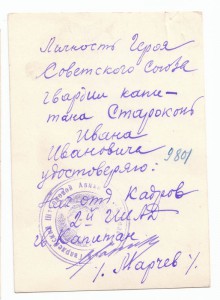 Личность Героя
Советского Союза
гвардии капи-
тана Староконь
Ивана
Ивановича 9801
удостоверяю:
Нач. отд. Кадров
2-й ШАД
и Капитан
/. Марчев /.